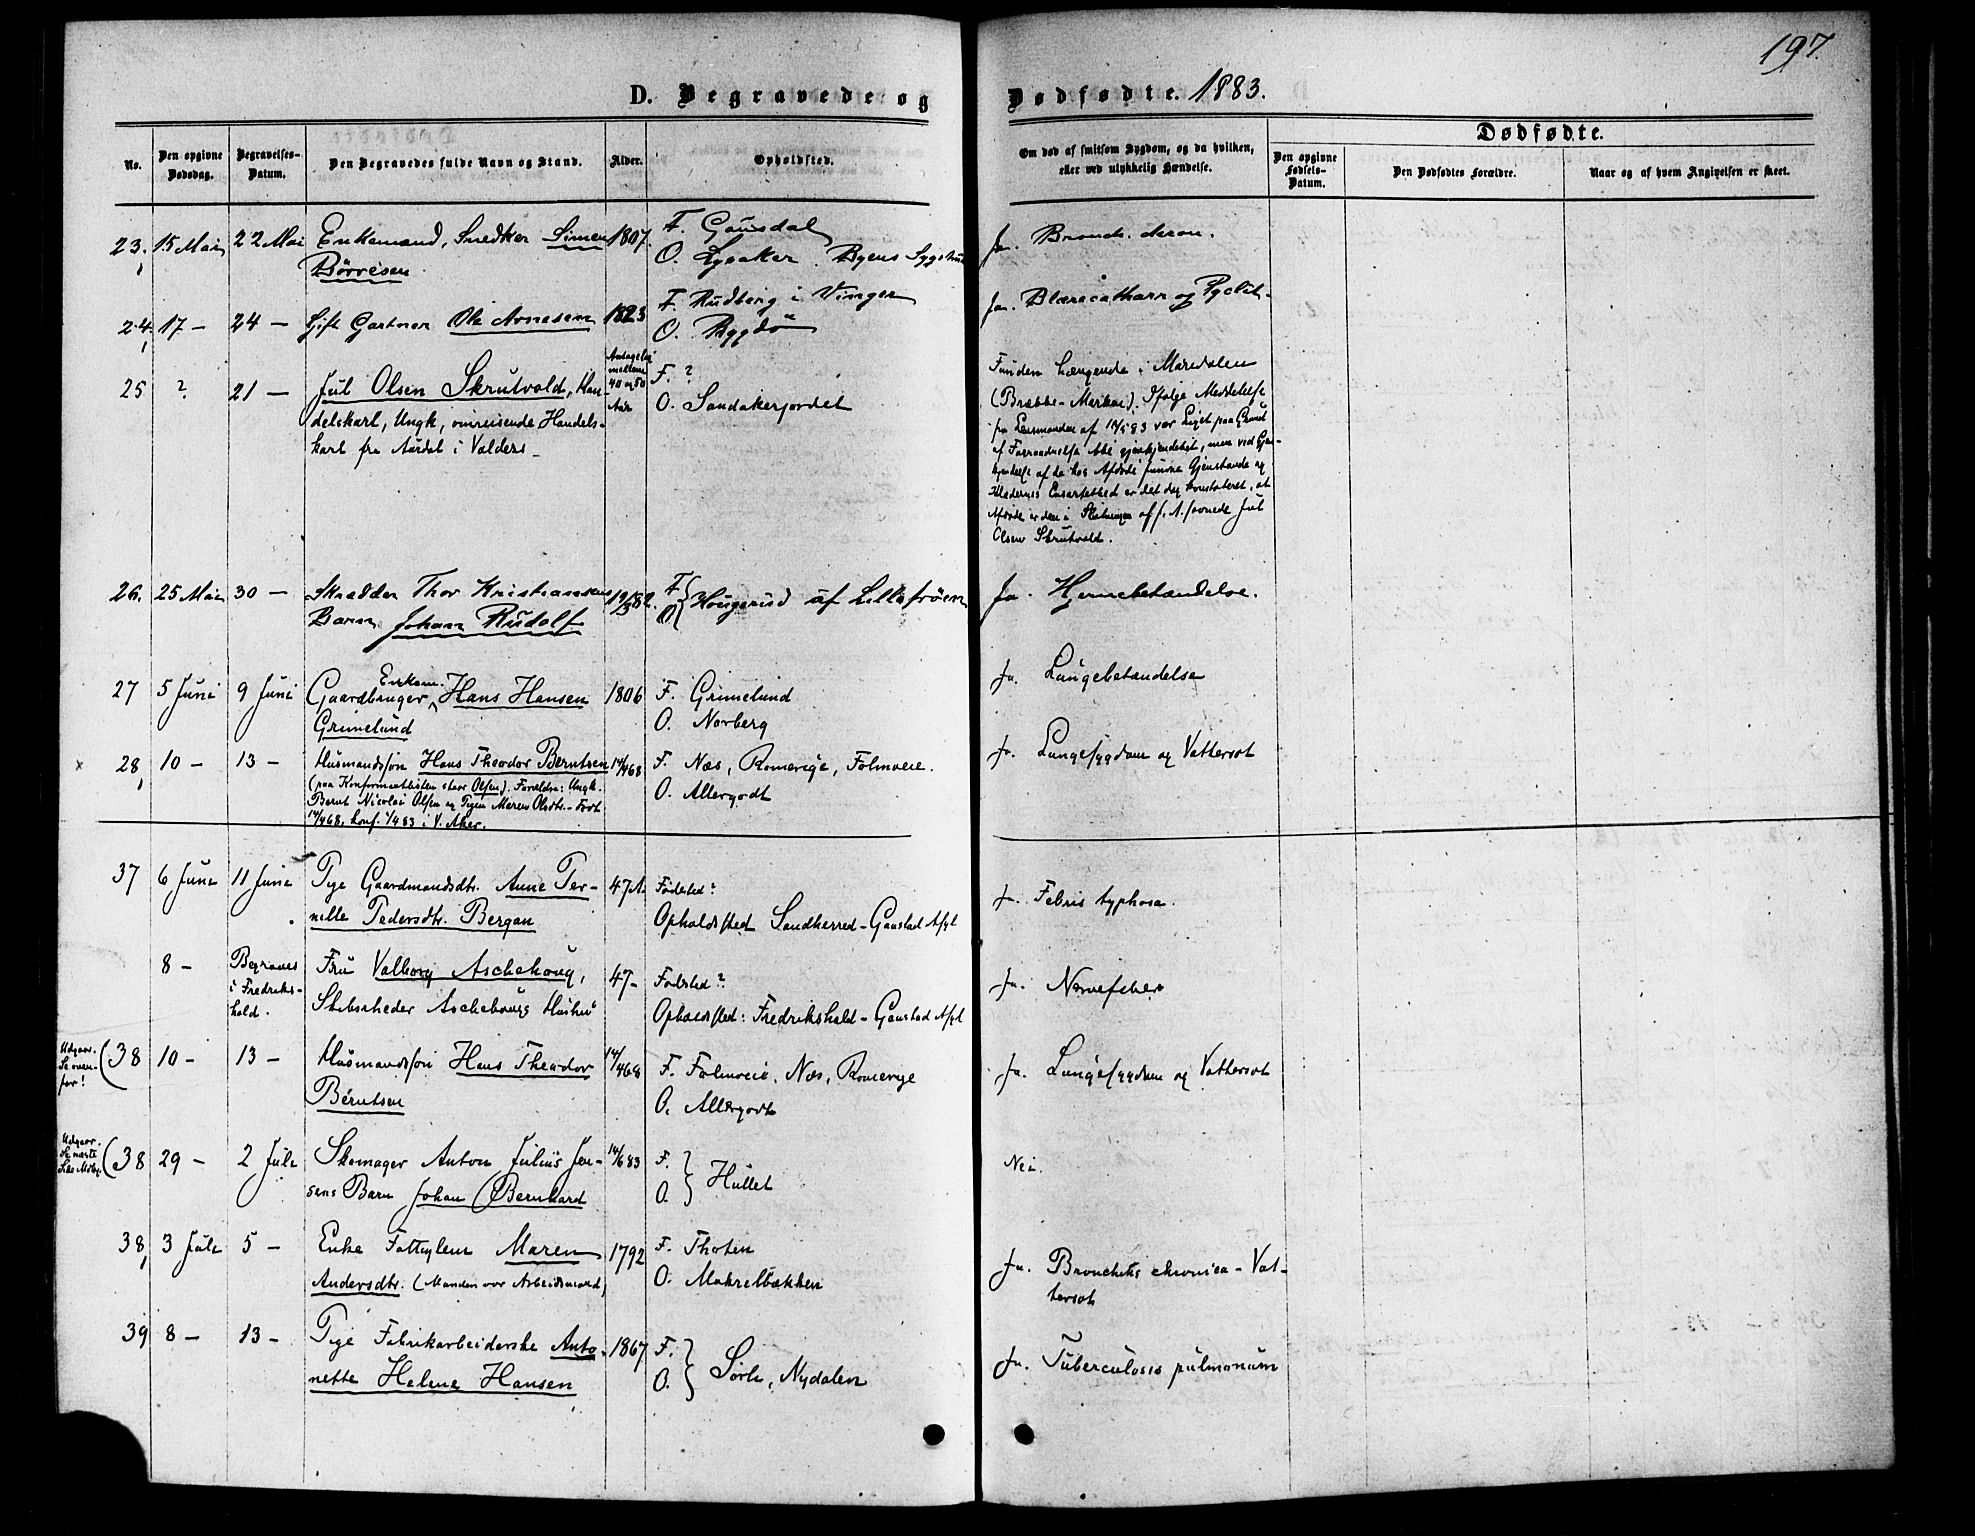 197.
D. Begravede og Dødfødte. 1883.
No.
Den opgivne Dødsdag.
Begravelses-Datum.
Den Begravedes fulde Navn og Stand.
Alder.
Opholdssted.
Om død af smitsom Sygdom, og da hvilken, eller ved ulykkelig Hændelse.
Dødfødte.
Den opgivne Fødsels-Datum.
Den Dødfødtes Forældre.
Naar og af hvem Angivelsen er skeet.
23. 15 Mai 22 Mai Enkemand, Snedker Simen 1807. F. Gausdal
Børresen O. Lysaker. Byens Sygehus
Ja. Bronch. chron.
24. 17 — 24 — Gift Gartner Ole Arnesen 1823 F. Rudberg i Vinger
O. Bygdö
Ja. Blærecatharr og Pyelit.
25 ? 21 — Jul Olsen Skrutvold, Han-
delskarl, Ungk, omreisende Handels-
karl fra Aurdal i Valders —
Antagelig mellem 40 og 50 Aar
F. ?
O. Sandakerjordet
Funden hængende i Maridalen
(Brække-Marken). Ifølge Meddelelse
fra Lensmanden af /5 83 var Liget paa Grund
af Forraadnelse ikke gjenkjendeligt, men ved Gjen-
kjendelse af de hos Afdøde fundne Gjenstande og
Klædernes Ensartethed er det dog konstateret, at
Afdøde er den i Slutningen af f. A. savnede Jul
Olsen Skrutvold.
26. 25 Mai 30 — Skrædder Thor Kristiansens 19/3 82. F. O. Hougerud af Lillefröen
Barn Johan Rudolf
Ja. Hjernebetændelse.
27 5 Juni 9 Juni Gaardbruger, Enkem. Hans Hansen 1806 F. Grimelund
Grimelund O. Norberg
Ja. Lungebetændelse
28, 10 — 13 — Husmandssøn Hans Theodor Berntsen 14/4 68 F. Næs, Romerige, Folmoeie.
(paa Konfirmantlisten staar Olsen). Forældre: Ungk.
Bernt Nicolai Olsen og Pigen Maren Olsdtr. — Født
14/4 68, konf. 1/4 83 i V. Aker.
O. Allergodt
Ja. Lungesygdom og Vattersot
37 6 Juni 11 Juni Pige Gaardmandsdtr. Anne Per- 47 A. Fødested?
nelle Pedersdtr. Bergan Opholdssted Sandherred - Gaustad Asyl
Ja. Febris typhosa.
8 — Begraves i Fredrikshald. Fru Valborg Aschehoug, 47 — Fødested?
Skibsrheder Aschehougs Hustru Opholdssted: Fredrikshald - Gaustad Asyl
Ja. Nervefeber
Udgaar. Se ovenfor! (38 10 — 13 — Husmandssøn Hans Theodor 14/4 68 F. Folmoeie, Næs, Romerige
Berntsen O. Allergodt
Ja. Lungesygdom og Vattersot
Udgaar. Se næste (38 29 — 2 Juli Skomager Anton Julius Jen- 14/6 83 F. O. Hullet
sens Barn Johan Bernhard
Nei.
38, 3 Juli 5 — Enke Fattiglem Maren 1792 F. Thoten
Andersdtr. (Manden var Arbeidsmand) O. Makrelbækken
Ja. Bronchitis chronica - Vat-
tersot
39 8 — 13 — Pige Fabrikarbeiderske Anto- 1867 F. O. Sørli, Nydalen
nette Helene Hansen
Ja. Tuberculosis pulmonum